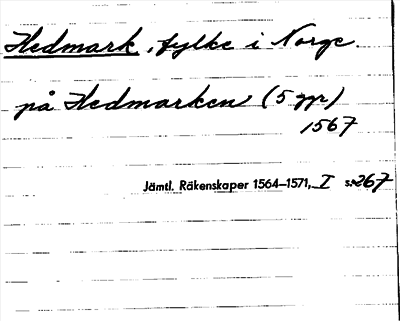 Hedmark, fylke i Norge.
på Hedmarken (5 ggr)
1567
Jämtl. Räkenskaper 1564–1571, I s. 267